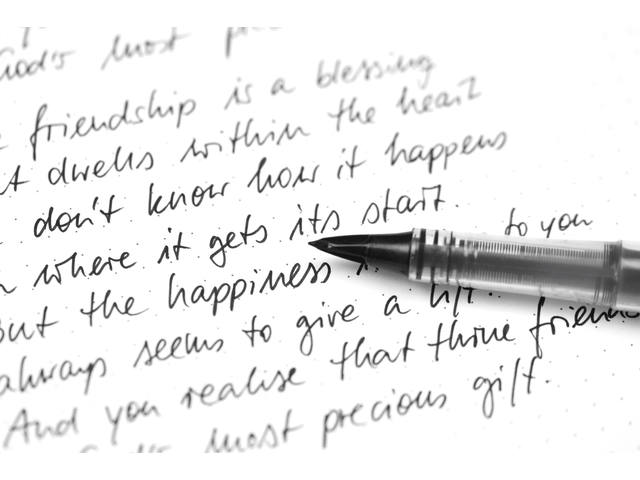 God's most
friendship is a blessing
dwells within the heart
don't know how it happens
where it gets its start.
But the happiness to you
always seems to give a lift.
And you realise that
God's most precious gift.